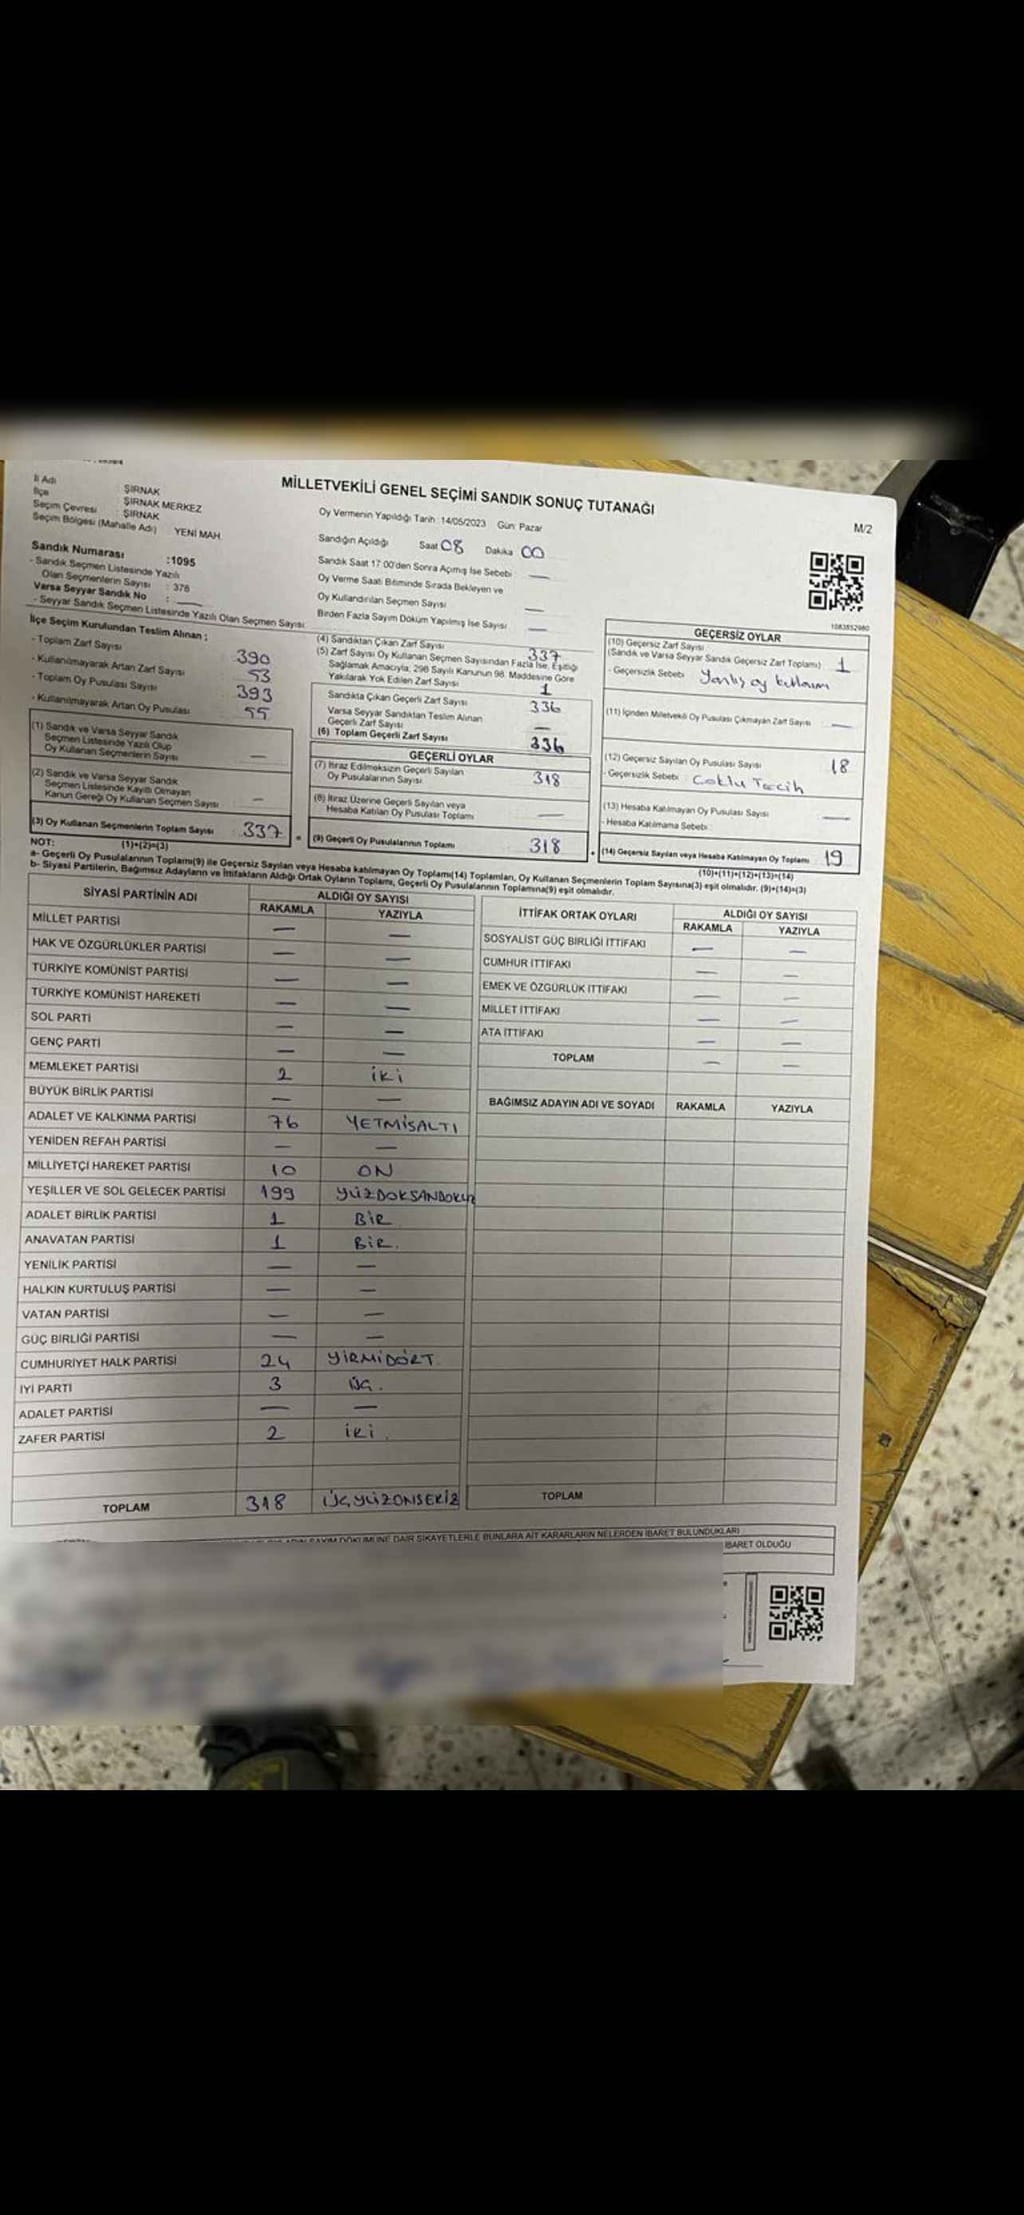 MİLLETVEKİLİ GENEL SEÇİMİ SANDIK SONUÇ TUTANAĞI
M/2
İl Adı : ŞIRNAK
İlçe : ŞIRNAK MERKEZ
Seçim Çevresi : ŞIRNAK
Seçim Bölgesi (Mahalle Adı) : YENİ MAH.
Sandık Numarası : 1095
- Sandık Seçmen Listesinde Yazılı
Olan Seçmenlerin Sayısı : 378
Varsa Seyyar Sandık No : —
- Seyyar Sandık Seçmen Listesinde Yazılı Olan Seçmen Sayısı
Oy Vermenin Yapıldığı Tarih : 14/05/2023 Gün: Pazar
Sandığın Açıldığı Saat 08 Dakika 00
Sandık Saat 17.00'den Sonra Açımış İse Sebebi —
Oy Verme Saati Bitiminde Sırada Bekleyen ve
Oy Kullandırılan Seçmen Sayısı —
Birden Fazla Sayım Döküm Yapılmış İse Sayısı —
1083852980
İlçe Seçim Kurulundan Teslim Alınan ;
- Toplam Zarf Sayısı 390
- Kullanılmayarak Artan Zarf Sayısı 53
- Toplam Oy Pusulası Sayısı 393
- Kullanılmayarak Artan Oy Pusulası 55
(1) Sandık ve Varsa Seyyar Sandık
Seçmen Listesinde Yazılı Olup
Oy Kullanan Seçmenlerin Sayısı —
(2) Sandık ve Varsa Seyyar Sandık
Seçmen Listesinde Kayıtlı Olmayan
Kanun Gereği Oy Kullanan Seçmen Sayısı —
(3) Oy Kullanan Seçmenlerin Toplam Sayısı 337
(1)+(2)=(3)
(4) Sandıktan Çıkan Zarf Sayısı 337
(5) Zarf Sayısı Oy Kullanan Seçmen Sayısından Fazla İse, Eşitliği
Sağlamak Amacıyla, 298 Sayılı Kanunun 98. Maddesine Göre
Yakılarak Yok Edilen Zarf Sayısı 1
Sandıkta Çıkan Geçerli Zarf Sayısı 336
Varsa Seyyar Sandıktan Teslim Alınan
Geçerli Zarf Sayısı —
(6) Toplam Geçerli Zarf Sayısı 336
GEÇERLİ OYLAR
(7) İtiraz Edilmeksizin Geçerli Sayılan
Oy Pusulalarının Sayısı 318
(8) İtiraz Üzerine Geçerli Sayılan veya
Hesaba Katılan Oy Pusulası Toplamı —
= (9) Geçerli Oy Pusulalarının Toplamı 318
GEÇERSİZ OYLAR
(10) Geçersiz Zarf Sayısı
(Sandık ve Varsa Seyyar Sandık Geçersiz Zarf Toplamı) 1
- Geçersizlik Sebebi Yanlış oy kullanım
(11) İçinden Milletvekili Oy Pusulası Çıkmayan Zarf Sayısı —
(12) Geçersiz Sayılan Oy Pusulası Sayısı 18
- Geçersizlik Sebebi Coklu Tercih
(13) Hesaba Katılmayan Oy Pusulası Sayısı —
- Hesaba Katılmama Sebebi
+ (14) Geçersiz Sayılan veya Hesaba Katılmayan Oy Toplamı 19
(10)+(11)+(12)+(13)=(14)
NOT:
a- Geçerli Oy Pusulalarının Toplamı(9) ile Geçersiz Sayılan veya Hesaba katılmayan Oy Toplamı(14) Toplamları, Oy Kullanan Seçmenlerin Toplam Sayısına(3) eşit olmalıdır. (9)+(14)=(3)
b- Siyasi Partilerin, Bağımsız Adayların ve İttifakların Aldığı Ortak Oyların Toplamı, Geçerli Oy Pusulalarının Toplamına(9) eşit olmalıdır.
SİYASİ PARTİNİN ADI ALDIĞI OY SAYISI
RAKAMLA YAZIYLA
MİLLET PARTİSİ — —
HAK VE ÖZGÜRLÜKLER PARTİSİ — —
TÜRKİYE KOMÜNİST PARTİSİ — —
TÜRKİYE KOMÜNİST HAREKETİ — —
SOL PARTİ — —
GENÇ PARTİ — —
MEMLEKET PARTİSİ 2 İKİ
BÜYÜK BİRLİK PARTİSİ — —
ADALET VE KALKINMA PARTİSİ 76 YETMİSALTI
YENİDEN REFAH PARTİSİ — —
MİLLİYETÇİ HAREKET PARTİSİ 10 ON
YEŞİLLER VE SOL GELECEK PARTİSİ 199 YÜZDOKSANDOKUZ
ADALET BİRLİK PARTİSİ 1 BİR
ANAVATAN PARTİSİ 1 BİR.
YENİLİK PARTİSİ — —
HALKIN KURTULUŞ PARTİSİ — —
VATAN PARTİSİ — —
GÜÇ BİRLİĞİ PARTİSİ — —
CUMHURİYET HALK PARTİSİ 24 YİRMİDÖRT.
İYİ PARTİ 3 ÜÇ.
ADALET PARTİSİ — —
ZAFER PARTİSİ 2 İKİ.
TOPLAM 318 ÜÇYÜZONSEKİZ
İTTİFAK ORTAK OYLARI ALDIĞI OY SAYISI
RAKAMLA YAZIYLA
SOSYALİST GÜÇ BİRLİĞİ İTTİFAKI — —
CUMHUR İTTİFAKI — —
EMEK VE ÖZGÜRLÜK İTTİFAKI — —
MİLLET İTTİFAKI — —
ATA İTTİFAKI — —
TOPLAM — —
BAĞIMSIZ ADAYIN ADI VE SOYADI RAKAMLA YAZIYLA
TOPLAM
SAYIM DÖKÜMÜNE DAİR ŞİKAYETLERLE BUNLARA AİT KARARLARIN NELERDEN İBARET BULUNDUKLARI
İBARET OLDUĞU